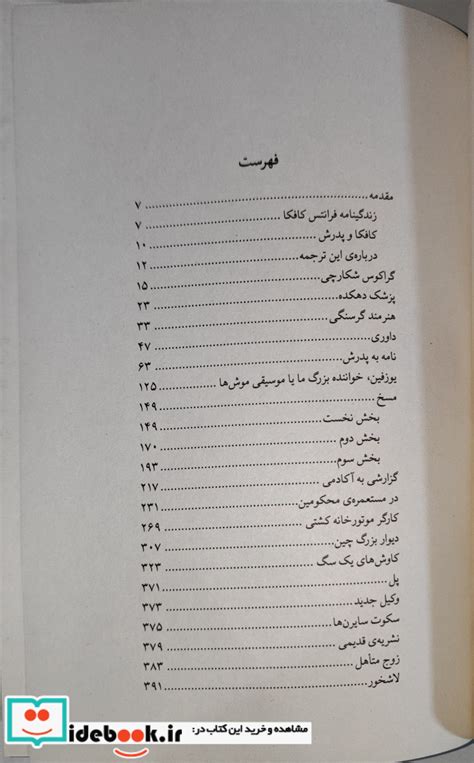 فهرست
مقدمه ........ ۷
زندگینامه فرانتس کافکا ........ ۷
کافکا و پدرش ........ ۱۰
درباره‌ی این ترجمه ........ ۱۲
گراکوس شکارچی ........ ۱۵
پزشک دهکده ........ ۲۳
هنرمند گرسنگی ........ ۳۳
داوری ........ ۴۷
نامه به پدرش ........ ۶۳
یوزفین، خواننده بزرگ ما یا موسیقی موش‌ها ........ ۱۲۵
مسخ ........ ۱۴۹
بخش نخست ........ ۱۴۹
بخش دوم ........ ۱۷۰
بخش سوم ........ ۱۹۳
گزارشی به آکادمی ........ ۲۱۷
در مستعمره‌ی محکومین ........ ۲۳۱
کارگر موتورخانه کشتی ........ ۲۶۹
دیوار بزرگ چین ........ ۳۰۷
کاوش‌های یک سگ ........ ۳۲۳
پل ........ ۳۷۱
وکیل جدید ........ ۳۷۳
سکوت سایرن‌ها ........ ۳۷۵
نشریه‌ی قدیمی ........ ۳۷۹
زوج متأهل ........ ۳۸۳
لاشخور ........ ۳۹۱
مشاهده و خرید این کتاب در:
idebook.ir